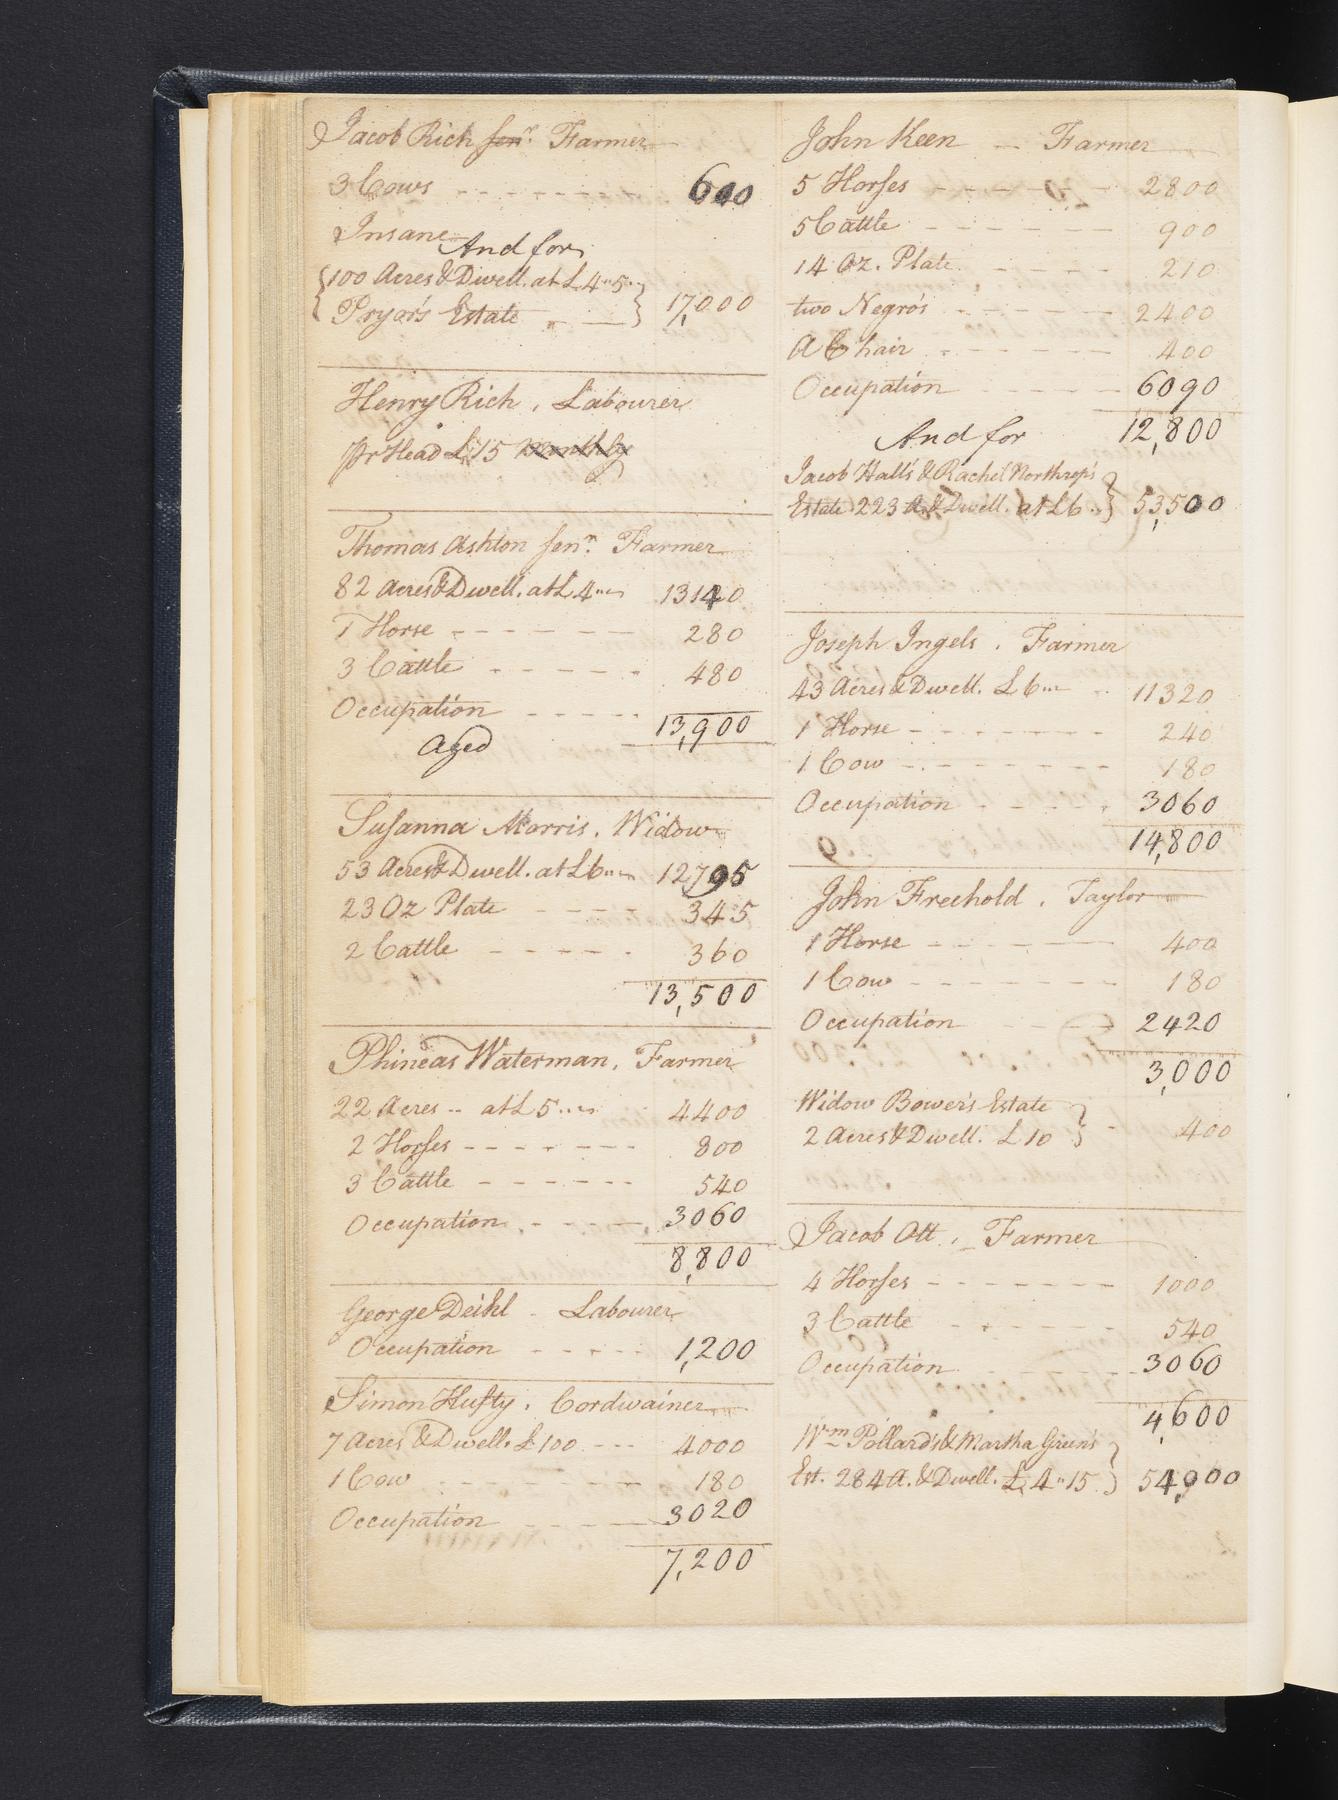 Jacob Rich Senr. Farmer
3 Cows 600
Insane
And for
100 Acres & Dwell. at £4"5"
Pryor's Estate 17,000
Henry Rich, Labourer
Pr Head £15 monthly
Thomas Ashton Senr. Farmer
82 Acres & Dwell. at £4 13140
1 Horse 280
3 Cattle 480
Occupation
13,900
Aged
Susanna Morris, Widow
53 Acres & Dwell. at £6 12795
23 Oz Plate 345
2 Cattle 360
13,500
Phineas Waterman, Farmer
22 Acres at £5 4400
2 Horses 800
3 Cattle 540
Occupation 3060
8,800
George Deihl - Labourer
Occupation 1,200
Simon Hufty, Cordwainer
7 Acres & Dwell. £100 4000
1 Cow 180
Occupation 3020
7,200
John Keen - Farmer
5 Horses 2800
5 Cattle 900
14 Oz. Plate 210
two Negro's 2400
A Chair 400
Occupation 6090
12,800
And for
Jacob Hall's & Rachel Northrop's
Estate 223 A. & Dwell. at £6 53,500
Joseph Ingels, Farmer
43 Acres & Dwell. £6 11320
1 Horse 240
1 Cow 180
Occupation 3060
14,800
John Freehold, Taylor
1 Horse 400
1 Cow 180
Occupation 2420
3,000
Widow Bower's Estate
2 Acres & Dwell. £10 400
Jacob Ott, Farmer
4 Horses 1000
3 Cattle 540
Occupation 3060
4,600
Wm Pollard's & Martha Green's
Est. 284 A. & Dwell. £4"15 54,000